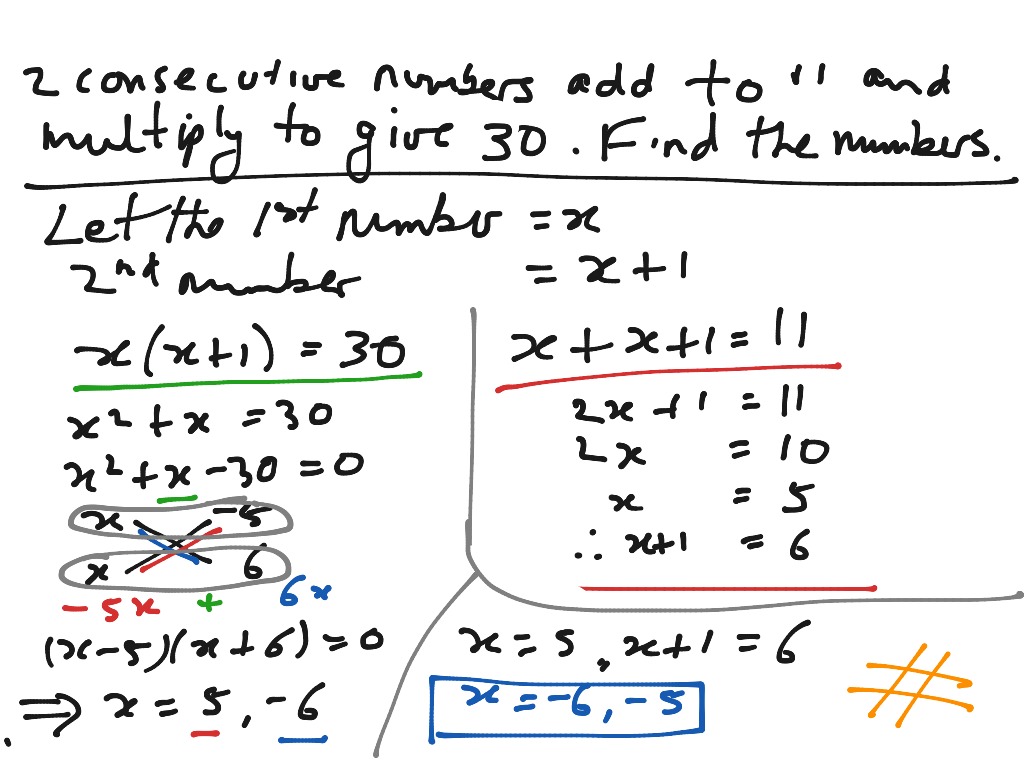 2 consecutive numbers add to 11 and
multiply to give 30. Find the numbers.
Let the 1st number = x
2nd number = x+1
x(x+1) = 30
x² + x = 30
x² + x - 30 = 0
x -5
x 6
- 5x + 6x
(x-5)(x+6) = 0
⇒ x = 5, -6
x + x+1 = 11
2x + 1 = 11
2x = 10
x = 5
∴ x+1 = 6
x = 5, x+1 = 6
x = -6, -5